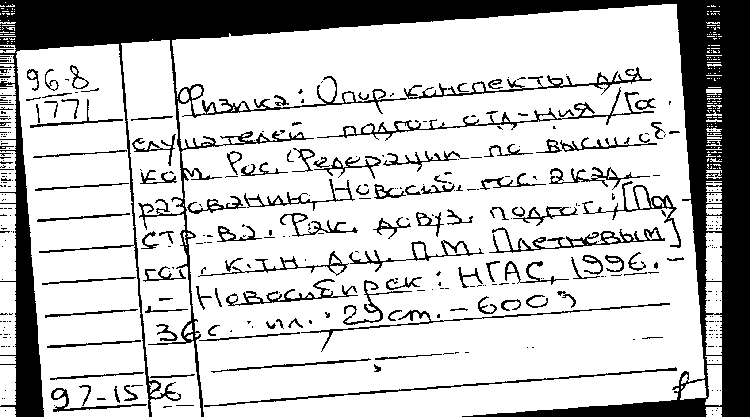 96-8
1771
Физика: Опор. конспекты для
слушателей подгот. отд-ния / Гос.
ком. Рос. Федерации по высш. об-
разованию, Новосиб. гос. акад.
стр-ва. Фак. довуз. подгот.; [Под-
гот. к.т.н., доц. П.М. Плетневым]
.- Новосибирск: НГАС, 1996. -
36 с. : ил. ; 29 см. -
97-1526